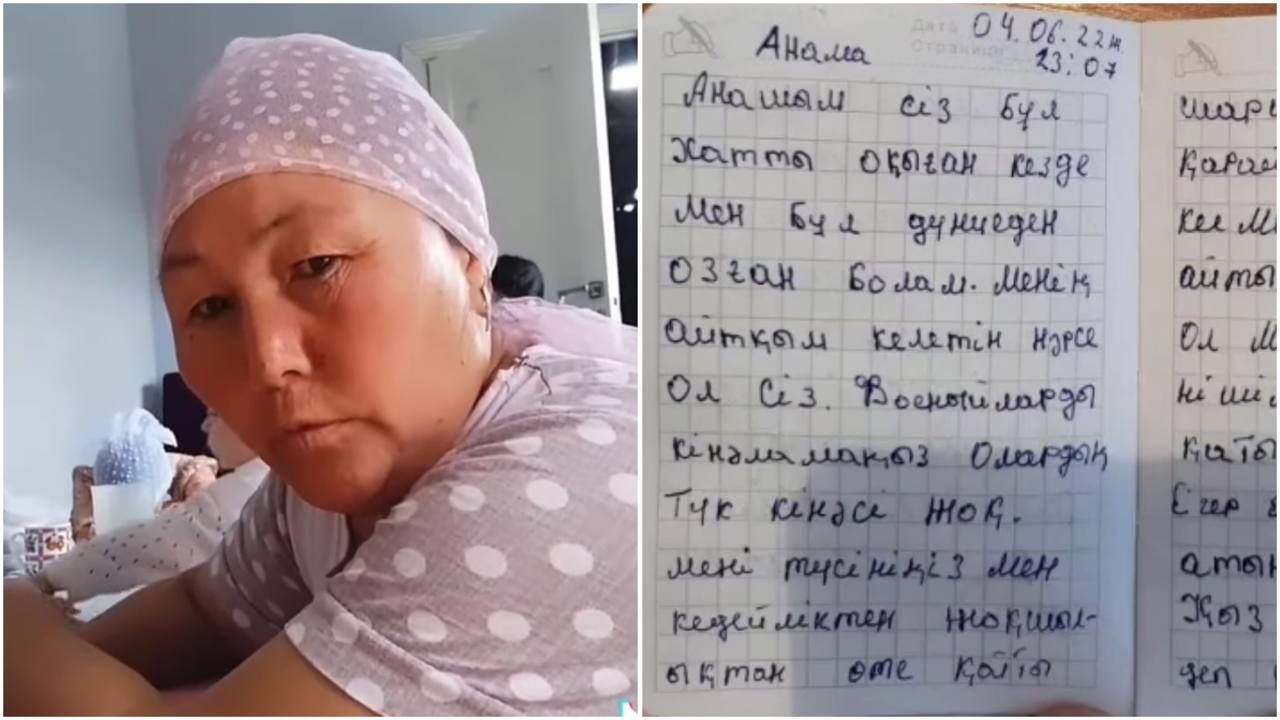 Дата 04.06.22ж
Страница 23:07
Анама
Анашым сіз бұл
хатты оқыған кезде
мен бұл дүниеден
озған болам. Менің
айтқым келетін нәрсе
Ол Сіз. Военныйларды
кінәламаңыз Олардың
Түк кінәсі жоқ.
мені түсініңіз мен
кедейліктен жоқшыл-
ықтан өте қатты
қарай
айты
Ол М
қаты
Егер
атын
Қыз
деп